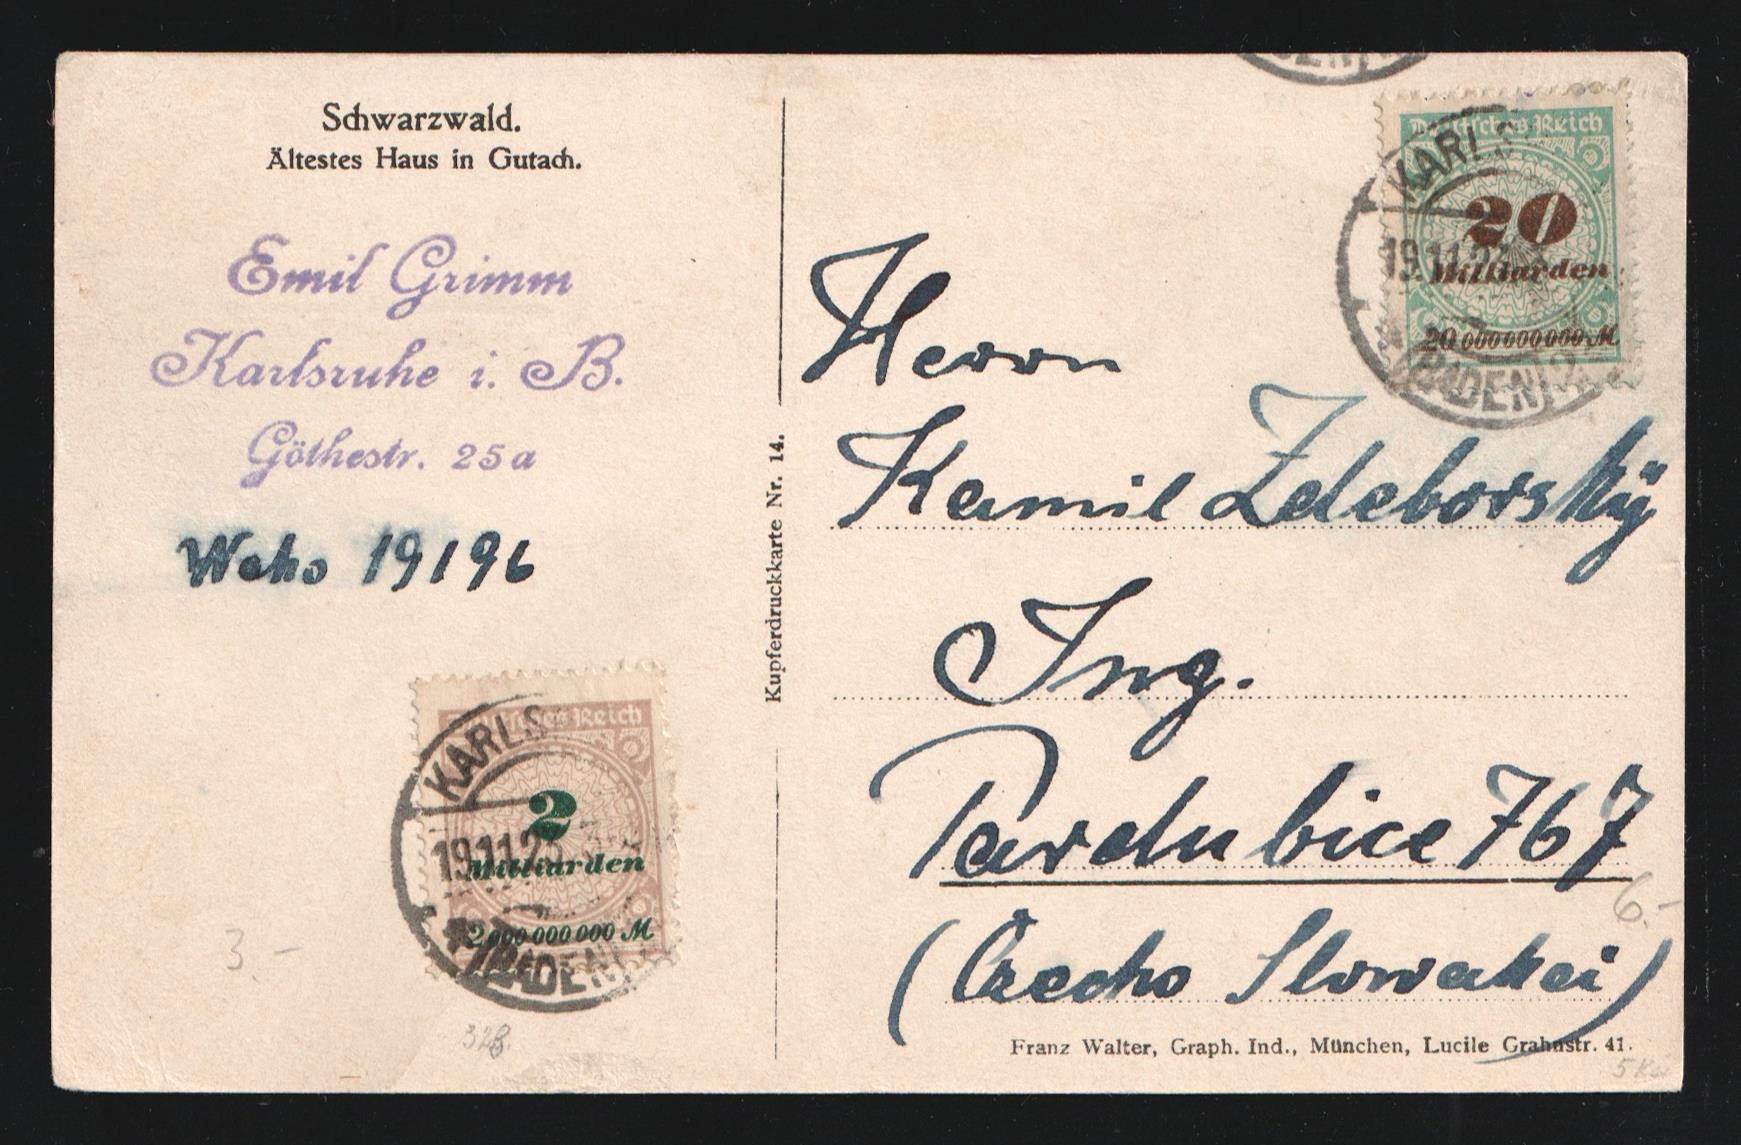 Schwarzwald.
Ältestes Haus in Gutach.
Emil Grimm
Karlsruhe i. B.
Göthestr. 25a
Weho 19196
Kupferdruckkarte Nr. 14.
Deutsches Reich
20
Milliarden
20 000 000 000 M
KARLS
19.11.2
(BADEN)
Herrn
Kamil Zdeborský
Ing.
Pardubice 767
(Czecho Slowakei)
Franz Walter, Graph. Ind., München, Lucile Grahnstr. 41.
Deutsches Reich
2
Milliarden
2 000 000 000 M
KARLS
19.11.2
(BADEN)
3.-
6.-